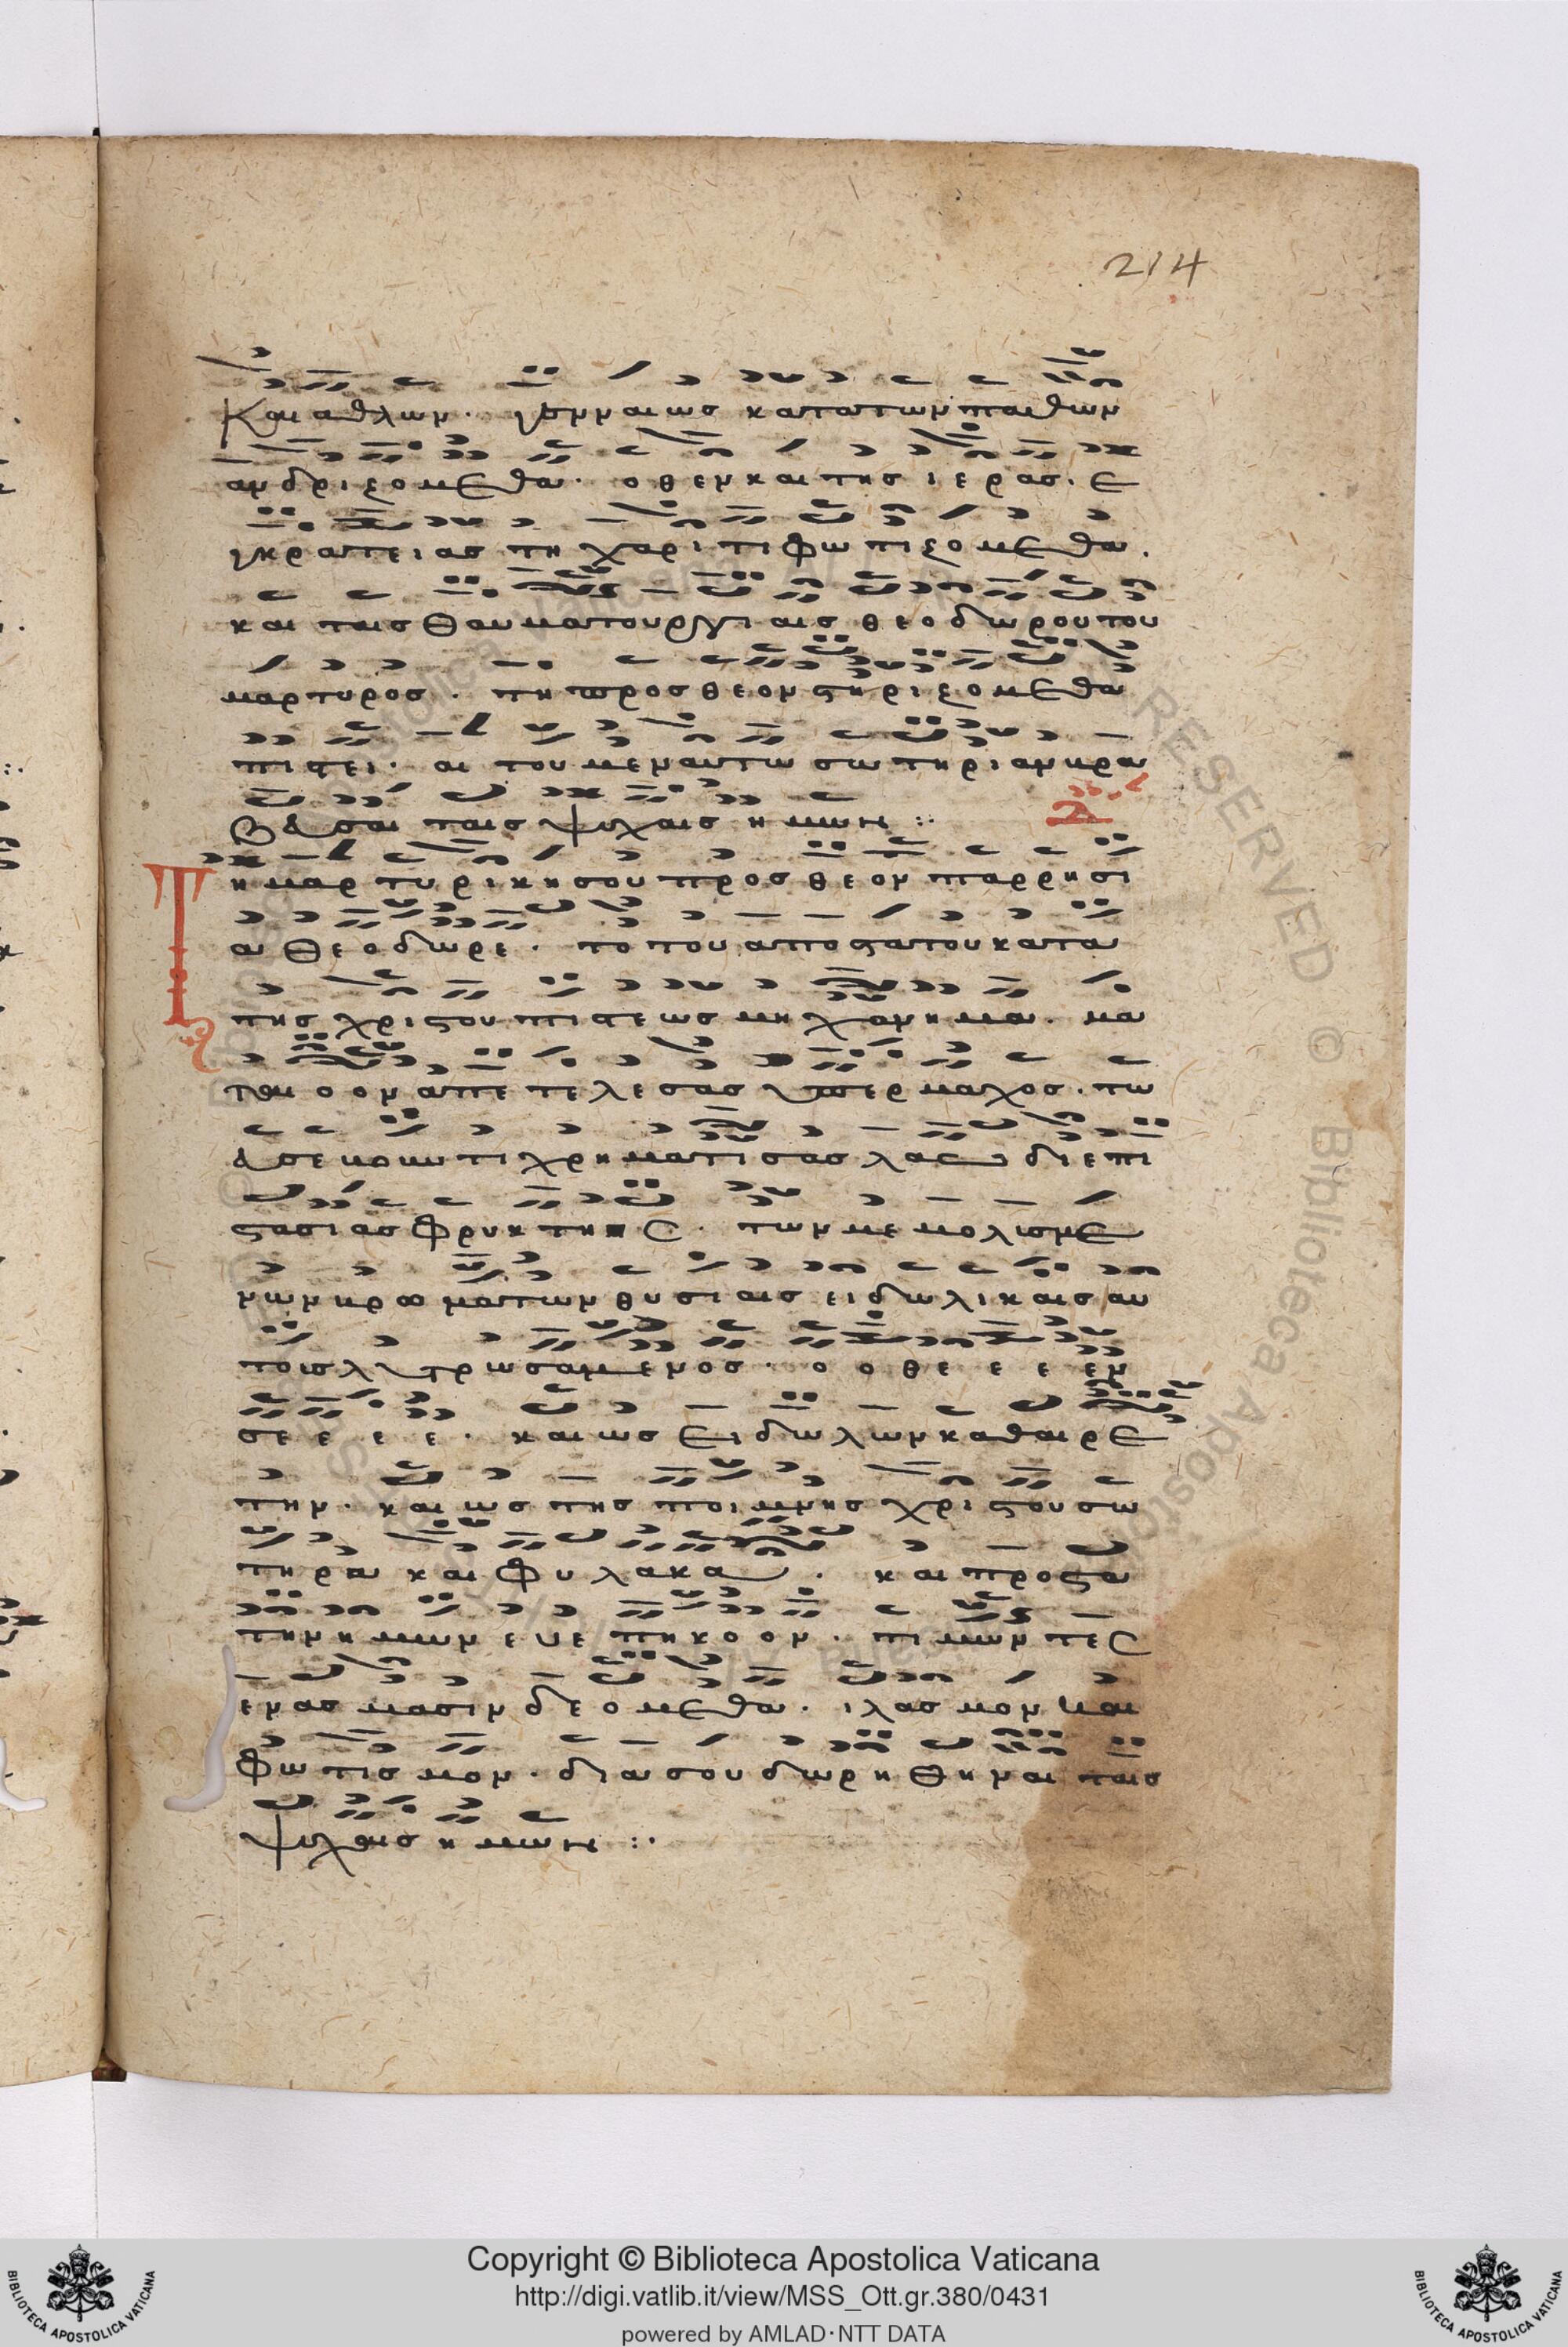 214
και αθλων. γενναιως κατα των παθων
ανδριζομεθα. οθεν και της ιερας. ε
γκρατειας τη χαριτι φωτιζομεθα.
και ταις θαυματουργιαις θεοδωρου του
μαρτυρος. τη προς θεον στηριζομεθα
πιστει. αιτουμεν αυτω σωτηριαν κρα
βευσαι ταις ψυχαις ημων ::
Τη μαρτυρικη σου προς θεον παρρησι
α θεοδωρε. το του αποστατου κατα
της χριστου πιστεως μηχανημα. μα
ταιοον απετελεσας υπερμαχος. τω
ευσεμνω τι χρηματισας λαω δι επι
στασιας φρυκτης. των μεμολισμε
νων κρωματων θυσιαις ειδωλικαις αυ
τοις λυτρωσαμενος. ο οθε ε ε εν
σε ε ε ε. και ως ειδωλων καθαιρε
την. και ως της ποιμνης χριστου σω
τηρα και φυλακα. και προστα
την ημων ευεπηκοον. τιμωντες
ενασμασιν δεομεθα. ιλασμον και
φωτισμον. δια σου δωρηθηναι ταις
ψυχαις ημων :·
Copyright © Biblioteca Apostolica Vaticana
http://digi.vatlib.it/view/MSS_Ott.gr.380/0431
powered by AMLAD·NTT DATA
BIBLIOTECA APOSTOLICA VATICANA
BIBLIOTECA APOSTOLICA VATICANA